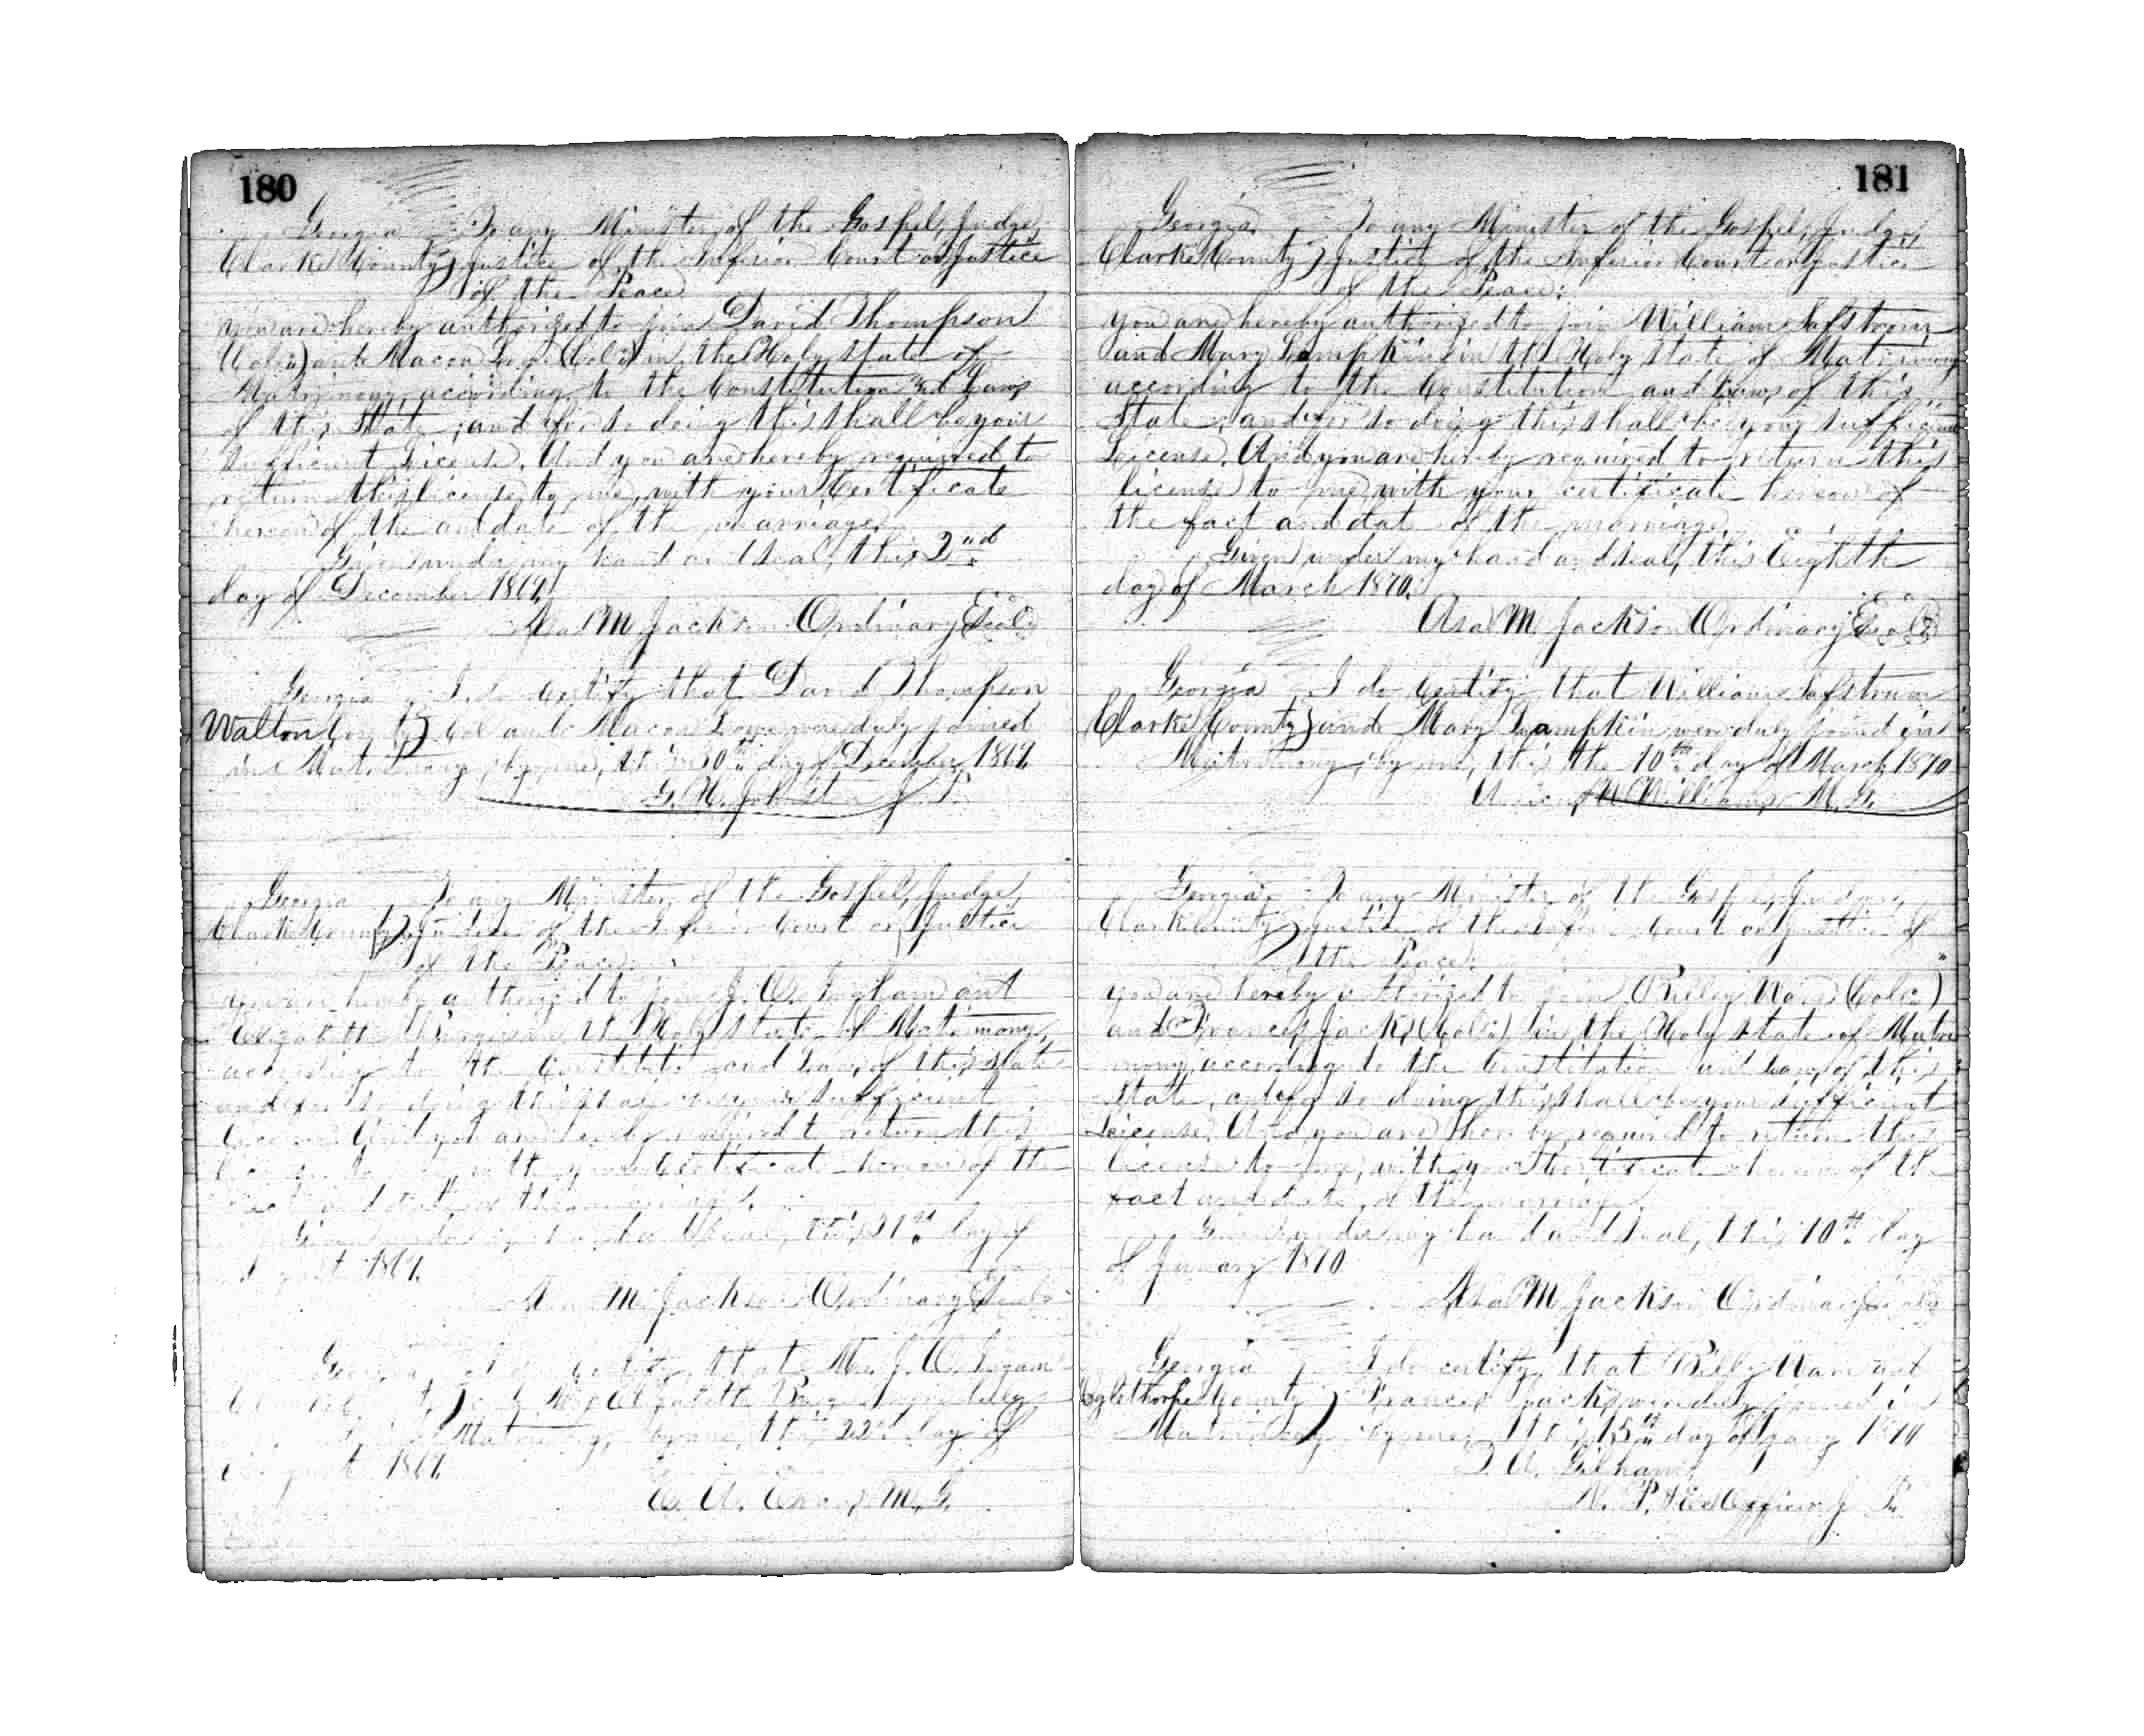 180
Georgia To any Minister of the Gospel, Judge,
Clarke County) Justice of the Inferior Court or Justice
of the Peace
you are hereby authorized to join David Thompson
and Macon in the Holy state of
Matrimony, according to the Constitution and Laws
of this State, and for so doing this shall be your
sufficient License. And you are hereby required to
return this license to me, with your Certificate
hereon of the and date of the marriage.
Given under my hand and seal, this 2nd
day of December 1869.
Asa M Jackson Ordinary Seal
Georgia I do Certify that David Thompson
Walton County) Col and Macon were duly joined
in Matrimony by me, this 30th day of December 1869
G. H. Johnston J. P.
Georgia To any Minister of the Gospel, Judge,
Clarke County) Justice of the Inferior Court or Justice
of the Peace:
you are hereby authorized to join J. O. and
Elizabeth in the Holy State of Matrimony,
according to the Constitution and Laws of this State
and for so doing this shall be your sufficient
license. And you are hereby required to return this
license to me, with your Certificate hereon of the
fact and date of the marriage.
Given under my hand and Seal, this 21st day of
August 1869.
Asa M Jackson Ordinary Seal
Georgia I do certify, that Mr. J. O.
County) and Miss Elizabeth were duly
joined in Matrimony, by me, this 22nd day of
August 1869
M. G.
181
Georgia To any Minister of the Gospel, Judge,
Clarke County) Justice of the Inferior Court or Justice
of the Peace:
you are hereby authorized to join William
and Mary Lampkin in the Holy state of Matrimony
according to the Constitution and Laws of this
State, and for so doing this shall be your sufficient
License. And you are hereby required to return this
license to me, with your certificate hereon of
the fact and date of the marriage.
Given under my hand and seal, this Eighth
day of March 1870.
Asa M Jackson Ordinary Seal
Georgia I do Certify that William
Clarke County) and Mary Lampkin were duly joined in
Matrimony, by me, this the 10th day of March 1870
Williams, M. G.
Georgia To any Minister of the Gospel, Judge,
Clarke County) Justice of the Inferior Court or Justice of
the Peace:
you are hereby authorized to join (Col:)
and Frances Jacks (Col:) in the Holy state of Matri
mony, according to the Constitution and Laws of this
State, and for so doing this shall be your sufficient
License. And you are hereby required to return this
license to me, with your Certificate hereon of the
fact and date of the marriage.
Given under my hand and Seal, this 10th day
of January 1870
Asa M Jackson Ordinary Seal
Georgia I do certify, that and
Oglethorpe County) Frances Jacks were duly joined in
Matrimony by me, this 15th day of Jany 1870
Gilham
N. P. & Ex Officio J P.